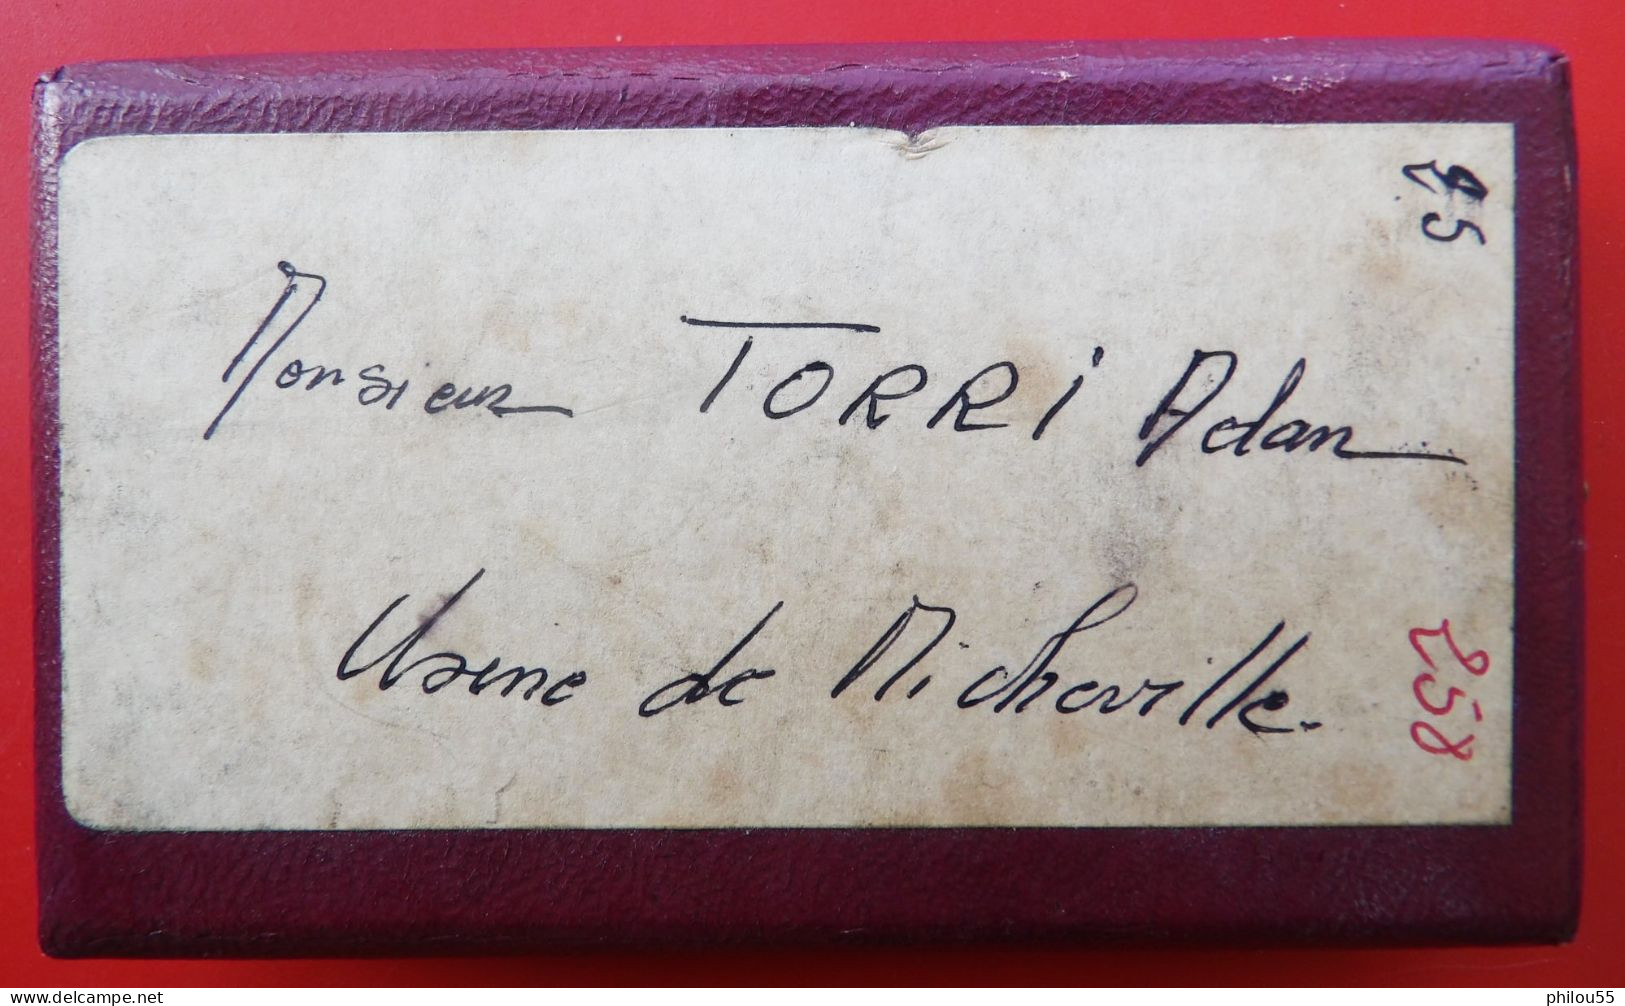 25
Monsieur TORRi Adan
Usine de Micheville.
258
delcampe.net
philou55